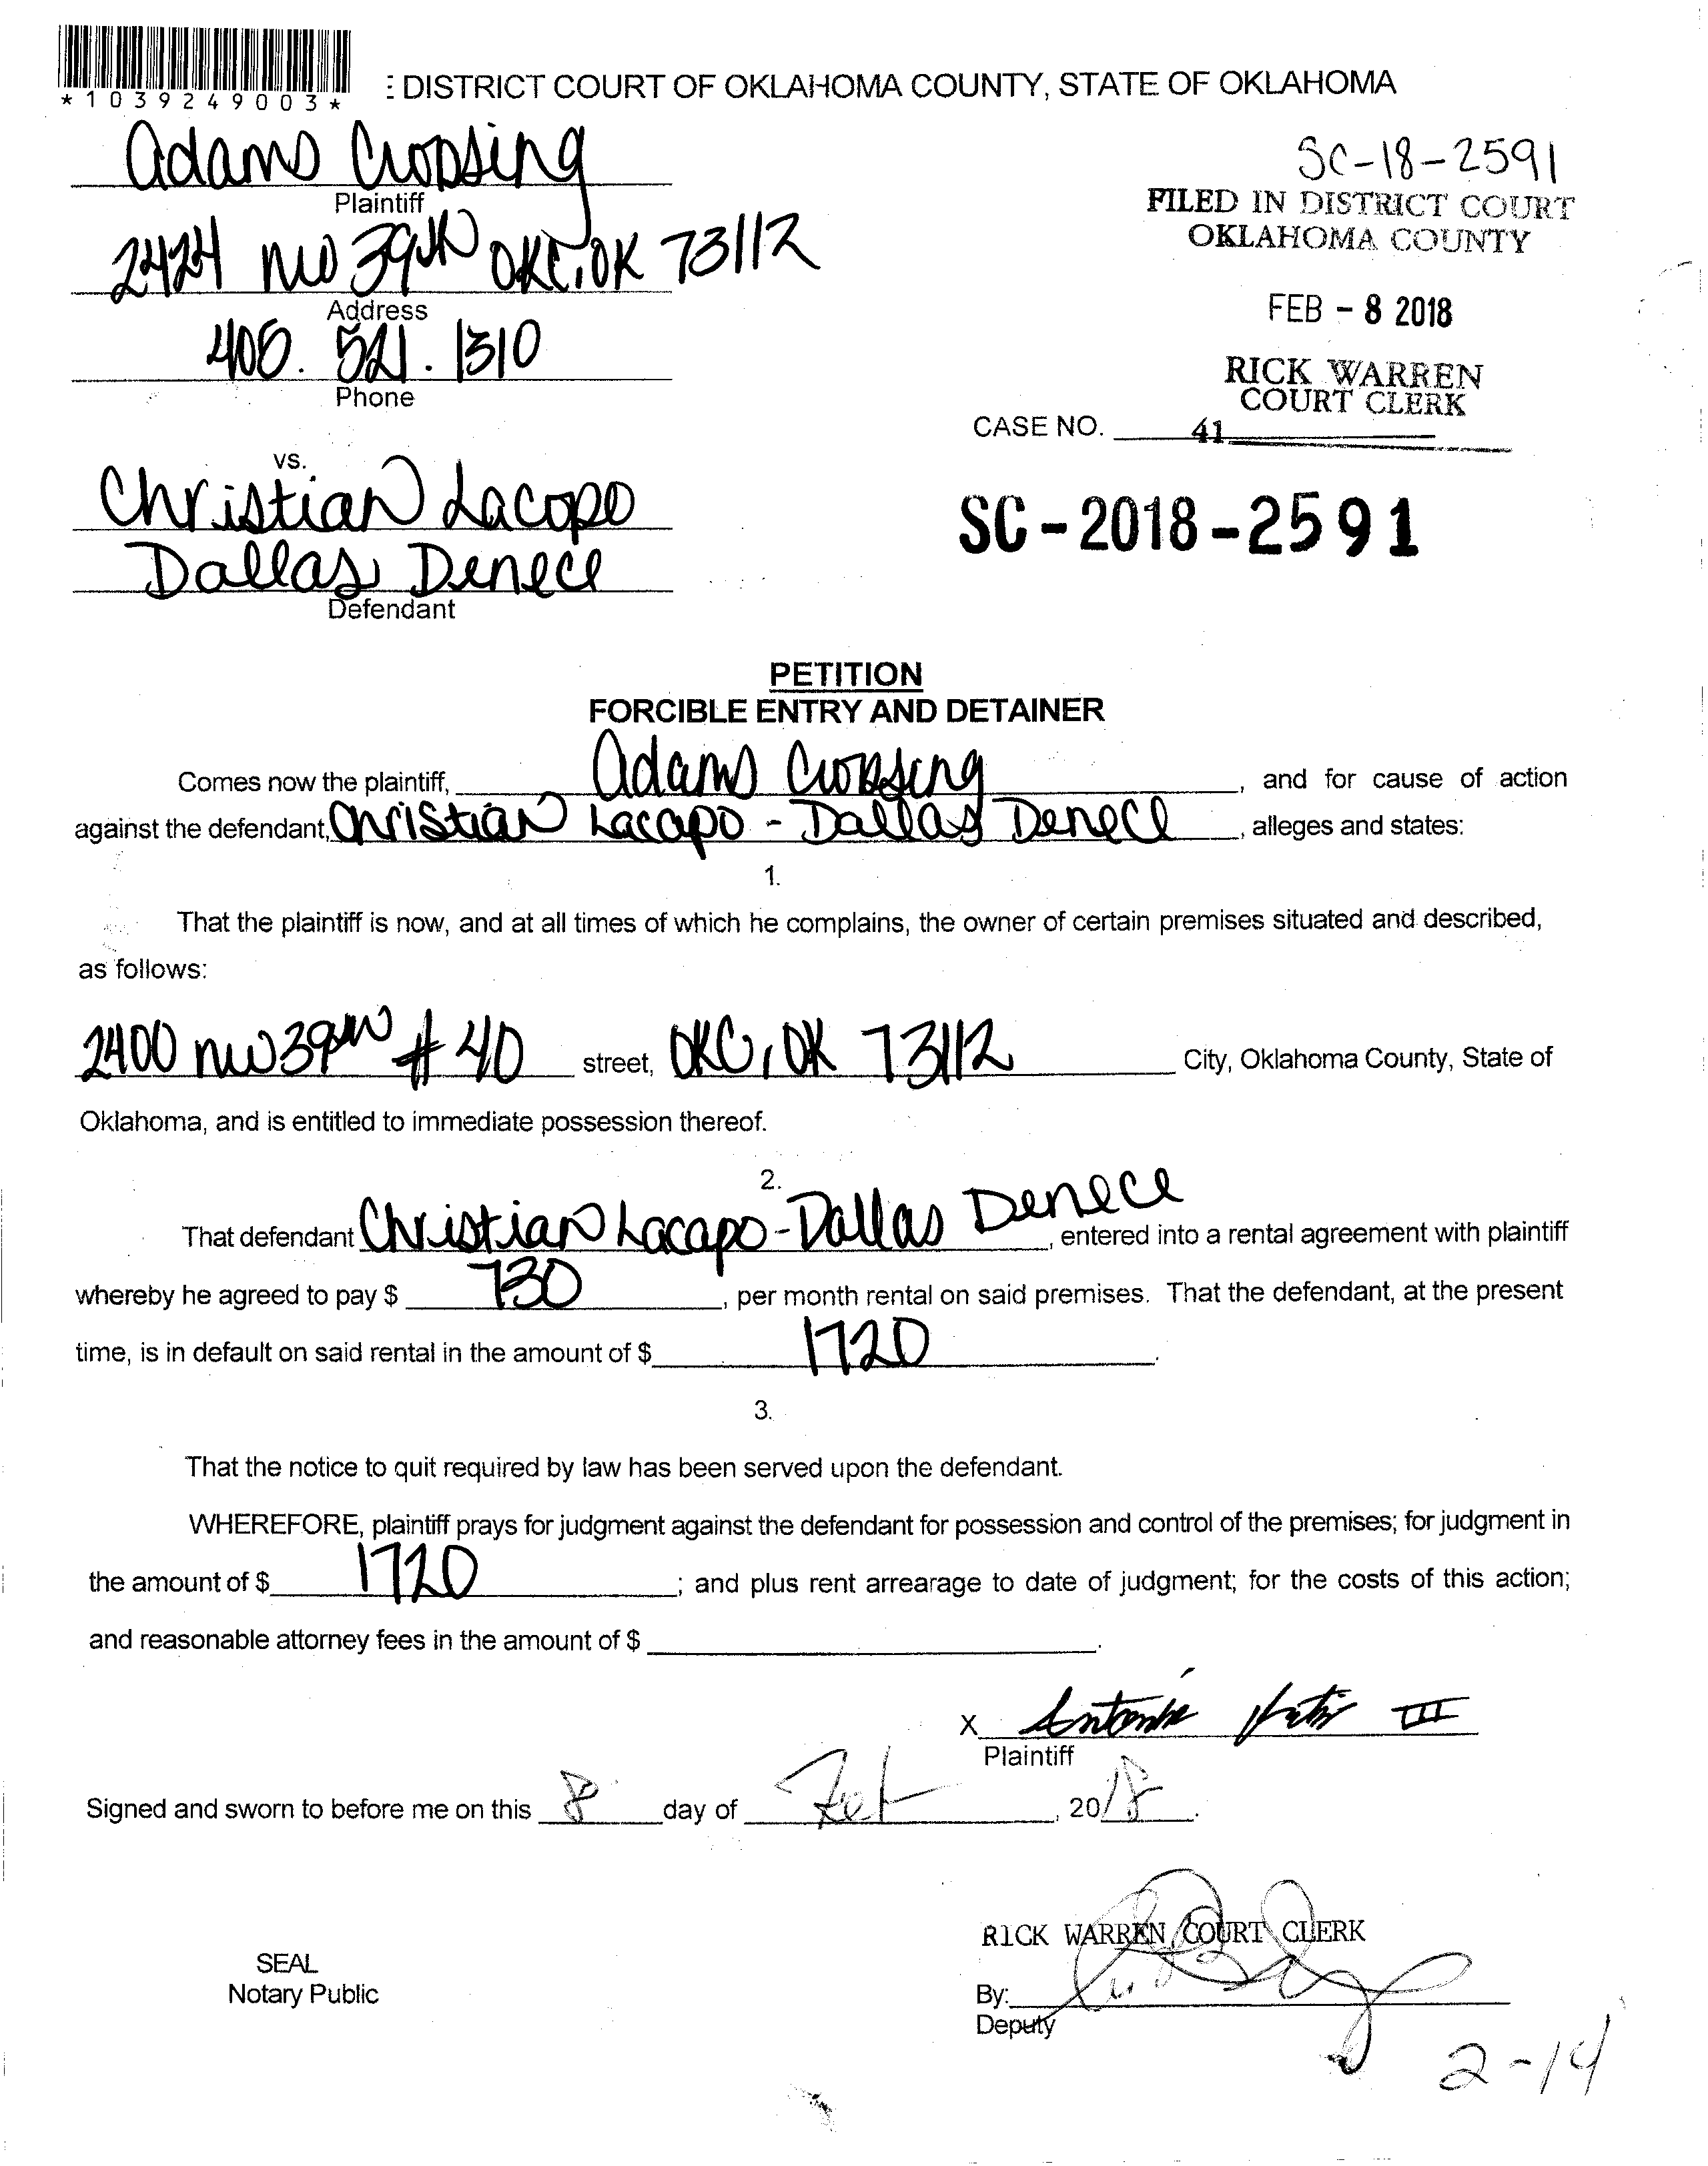 *1039249003*
: DISTRICT COURT OF OKLAHOMA COUNTY, STATE OF OKLAHOMA
Adams Crossing
Plaintiff
SC-18-2591
FILED IN DISTRICT COURT
OKLAHOMA COUNTY
2424 NW 39th OKC, OK 73112
Address
FEB - 8 2018
405. 521. 1310
Phone
RICK WARREN
COURT CLERK
CASE NO. 41
vs.
Christian Lacopo
Dallas Denece
Defendant
SC-2018-2591
PETITION
FORCIBLE ENTRY AND DETAINER
Comes now the plaintiff, Adams Crossing, and for cause of action
against the defendant, Christian Lacapo - Dallas Denece, alleges and states:
1.
That the plaintiff is now, and at all times of which he complains, the owner of certain premises situated and described,
as follows:
2400 NW 39th # 40 street, OKC, OK 73112 City, Oklahoma County, State of
Oklahoma, and is entitled to immediate possession thereof.
2.
That defendant Christian Lacapo - Dallas Denece, entered into a rental agreement with plaintiff
whereby he agreed to pay $ 730, per month rental on said premises. That the defendant, at the present
time, is in default on said rental in the amount of $ 1720.
3.
That the notice to quit required by law has been served upon the defendant.
WHEREFORE, plaintiff prays for judgment against the defendant for possession and control of the premises; for judgment in
the amount of $ 1720; and plus rent arrearage to date of judgment; for the costs of this action;
and reasonable attorney fees in the amount of $ .
X III
Plaintiff
Signed and sworn to before me on this 8 day of Feb, 2018.
RICK WARREN, COURT CLERK
SEAL
Notary Public
By:
Deputy
2-14